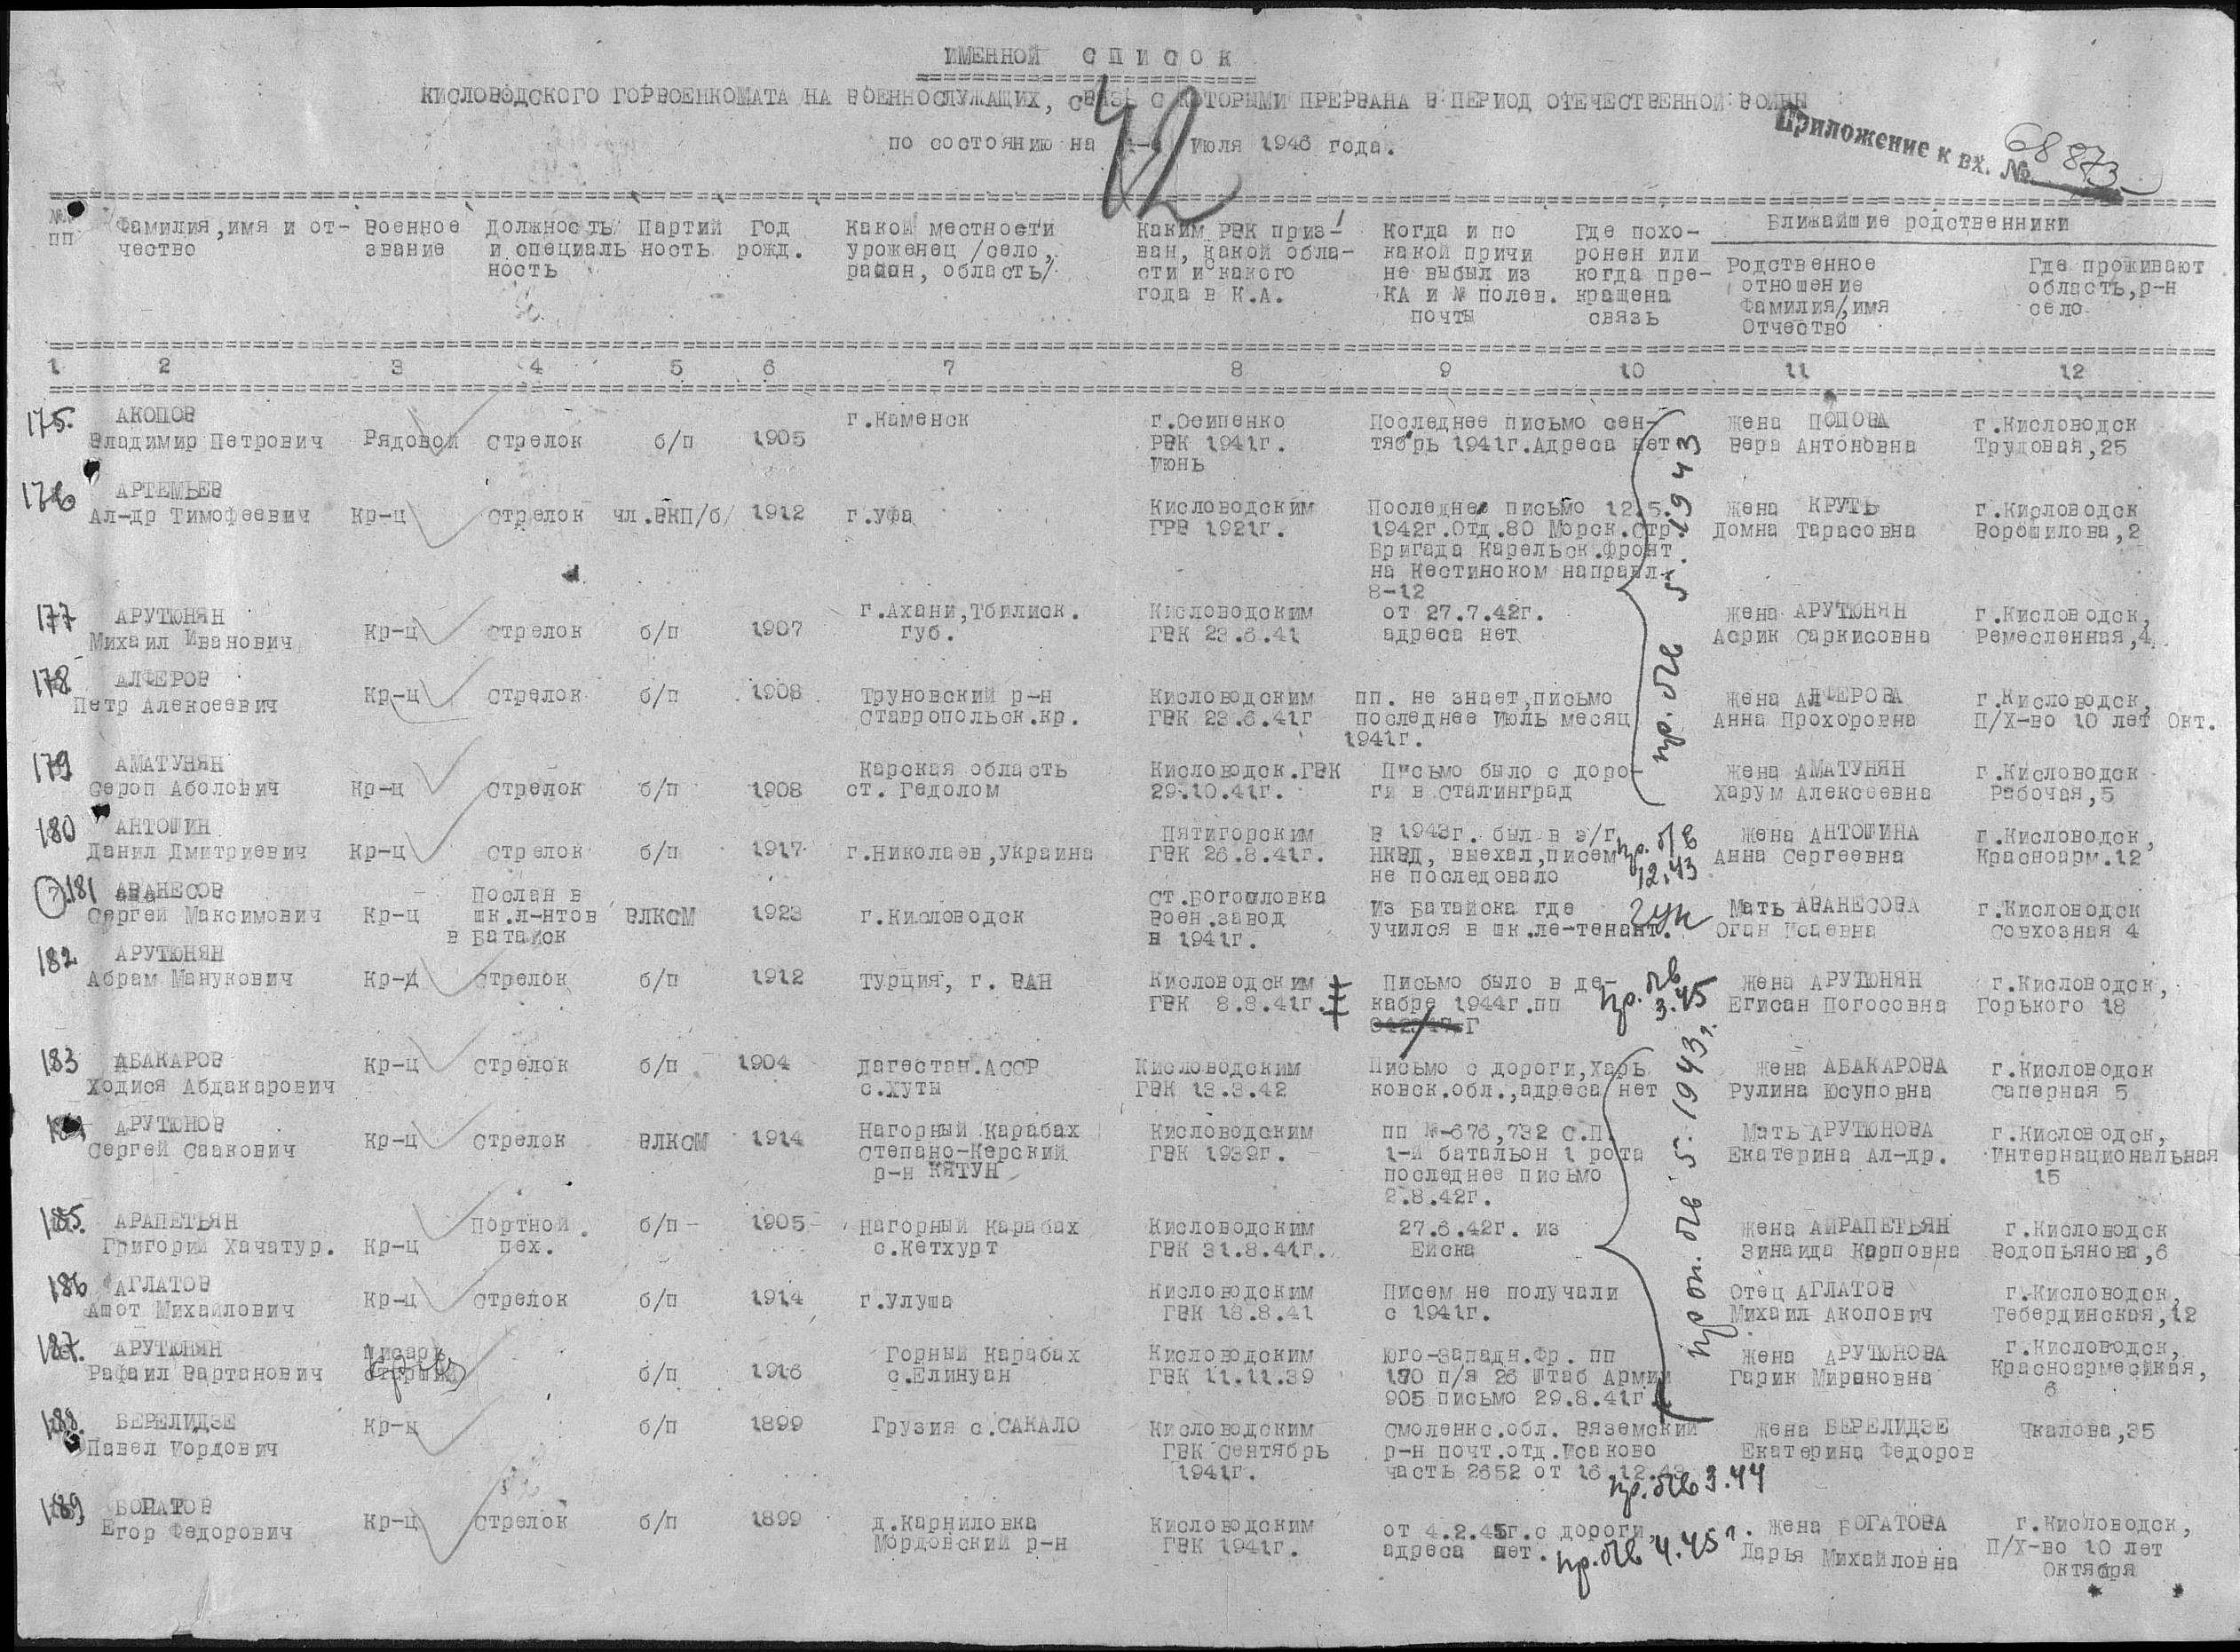 ИМЕННОЙ СПИСОК
КИСЛОВОДСКОГО ГОРВОЕНКОМАТА НА ВОЕННОСЛУЖАЩИХ, СВЯЗЬ С КОТОРЫМИ ПРЕРВАНА В ПЕРИОД ОТЕЧЕСТВЕННОЙ ВОЙНЫ
по состоянию на июля 1946 года.
42
Приложение к вх. № 68873
№№ пп Фамилия, имя и от- Военное Должность Партий Год Какой местности Каким РВК приз- Когда и по Где похо- Ближайшие родственники
чество звание и специаль ность рожд. уроженец /село, ван, какой обла- какой причи ронен или
ность район, область/ сти и какого не выбыл из когда пре- Родственное Где проживают
года в К.А. КА и № полев. кращена отношение область, р-н
почты связь Фамилия, имя село
Отчество
1 2 3 4 5 6 7 8 9 10 11 12
175. АКОПОВ г.Каменск г.Осипенко Последнее письмо сен- Жена ПОПОВА г.Кисловодск
Владимир Петрович Рядовой стрелок б/п 1905 РВК 1941г. тябрь 1941г.Адреса нет Вера Антоновна Трудовая,25
июнь
176 АРТЕМЬЕВ Кисловодским Последнее письмо 12.5. Жена КРУТЬ г.Кисловодск
Ал-др Тимофеевич Кр-ц стрелок чл.ВКП/б/ 1912 г.Уфа ГРВ 1921г. 1942г.Отд.80 Морск.стр. Домна Тарасовна Ворошилова,2
Бригада Карельск.фронт
на Кестинском направл.
8-12
177 АРУТЮНЯН г.Ахани,Тбилиск. Кисловодским от 27.7.42г. Жена АРУТЮНЯН г.Кисловодск,
Михаил Иванович Кр-ц стрелок б/п 1907 губ. ГВК 23.6.41 адреса нет Асрик Саркисовна Ремесленная,4
178 АЛФЕРОВ Кр-ц стрелок б/п 1908 Труновский р-н Кисловодским пп. не знает,письмо Жена АЛФЕРОВА г.Кисловодск,
Петр Алексеевич Ставропольск.кр. ГВК 23.6.41г последнее июль месяц Анна Прохоровна П/Х-во 10 лет Окт.
1941г.
пр. б/в 5. 1943
179 АМАТУНЯН Карская область Кисловодск.ГВК Письмо было с доро- Жена АМАТУНЯН г.Кисловодск
Сероп Аболович Кр-ц стрелок б/п 1908 ст. Гедолом 29.10.41г. ги в Сталинград Харум Алексеевна Рабочая,5
180 АНТОШИН Пятигорским В 1943г. был в э/г Жена АНТОШИНА г.Кисловодск,
Данил Дмитриевич Кр-ц стрелок б/п 1917 г.Николаев,Украина ГВК 26.8.41г. НКВД, выехал,писем Анна Сергеевна Красноарм.12
не последовало
пр. б/в 12.43
181 АВАНЕСОВ Послан в Ст.Богословка Из Батайска где Мать АВАНЕСОВА г.Кисловодск
Сергей Максимович Кр-ц шк.л-нтов ВЛКСМ 1923 г.Кисловодск Воен.завод учился в шк.ле-тенант. Оган Исаевна Совхозная 4
в Батайск в 1941г.
гук
182 АРУТЮНЯН
Абрам Манукович Кр-ц стрелок б/п 1912 Турция, г. ВАН Кисловодским Письмо было в де- Жена АРУТЮНЯН г.Кисловодск,
ГВК 8.8.41г. кабре 1944г.пп Егисан Погосовна Горького 18
пр. б/в 3.45
183 АБАКАРОВ Кр-ц стрелок б/п 1904 Дагестан.АССР Кисловодским Письмо с дороги,Харь Жена АБАКАРОВА г.Кисловодск
Ходися Абдакарович с.Хуты ГВК 13.3.42 ковск.обл.,адреса нет Рулина Юсуповна Саперная 5
184 АРУТЮНОВ Кр-ц стрелок ВЛКСМ 1914 Нагорный Карабах Кисловодским пп №-676,732 С.П. Мать АРУТЮНОВА г.Кисловодск,
Сергей Саакович Степано-Керский ГВК 1939г. 1-й батальон 1 рота Екатерина Ал-др. Интернациональная
р-н КЯТУН последнее письмо 15
2.8.42г.
185. АРАПЕТЬЯН Портной б/п 1905 Нагорный Карабах Кисловодским 27.6.42г. из Жена АЙРАПЕТЬЯН г.Кисловодск
Григорий Хачатур. Кр-ц пех. с.Кетхурт ГВК 31.8.41г. Ейска Зинаида Карповна Водопьянова,6
проп. б/в 5. 1943г.
186 АГЛАТОВ Кр-ц стрелок б/п 1914 г.Улуша Кисловодским Писем не получали Отец АГЛАТОВ г.Кисловодск,
Ашот Михайлович ГВК 18.8.41 с 1941г. Михаил Акопович Тебердинская,12
187. АРУТЮНЯН Писарь Горный Карабах Кисловодским Юго-Западн.Фр. пп Жена АРУТЮНОВА г.Кисловодск,
Рафаил Вартанович старший б/п 1916 с.Елинуан ГВК 11.11.39 190 п/я 26 Штаб Армии Гарик Мироновна Красноармейская,
905 письмо 29.8.41г. 6
188 БЕРЕЛИДЗЕ Кр-ц б/п 1899 Грузия с.САКАЛО Кисловодским Смоленкс.обл. Вяземский Жена БЕРЕЛИДЗЕ Чкалова,35
Павел Иордович ГВК Сентябрь р-н почт.отд.Исаково Екатерина Федоров
1941г. часть 2652 от 16.12.43
пр. б/в 3.44
189 БОГАТОВ Кр-ц стрелок б/п 1899 д.Карниловка Кисловодским от 4.2.45г.с дороги Жена БОГАТОВА г.Кисловодск,
Егор Федорович Мордовский р-н ГВК 1941г. адреса нет. Дарья Михайловна П/Х-во 10 лет
Октября
пр. б/в 4.45г.